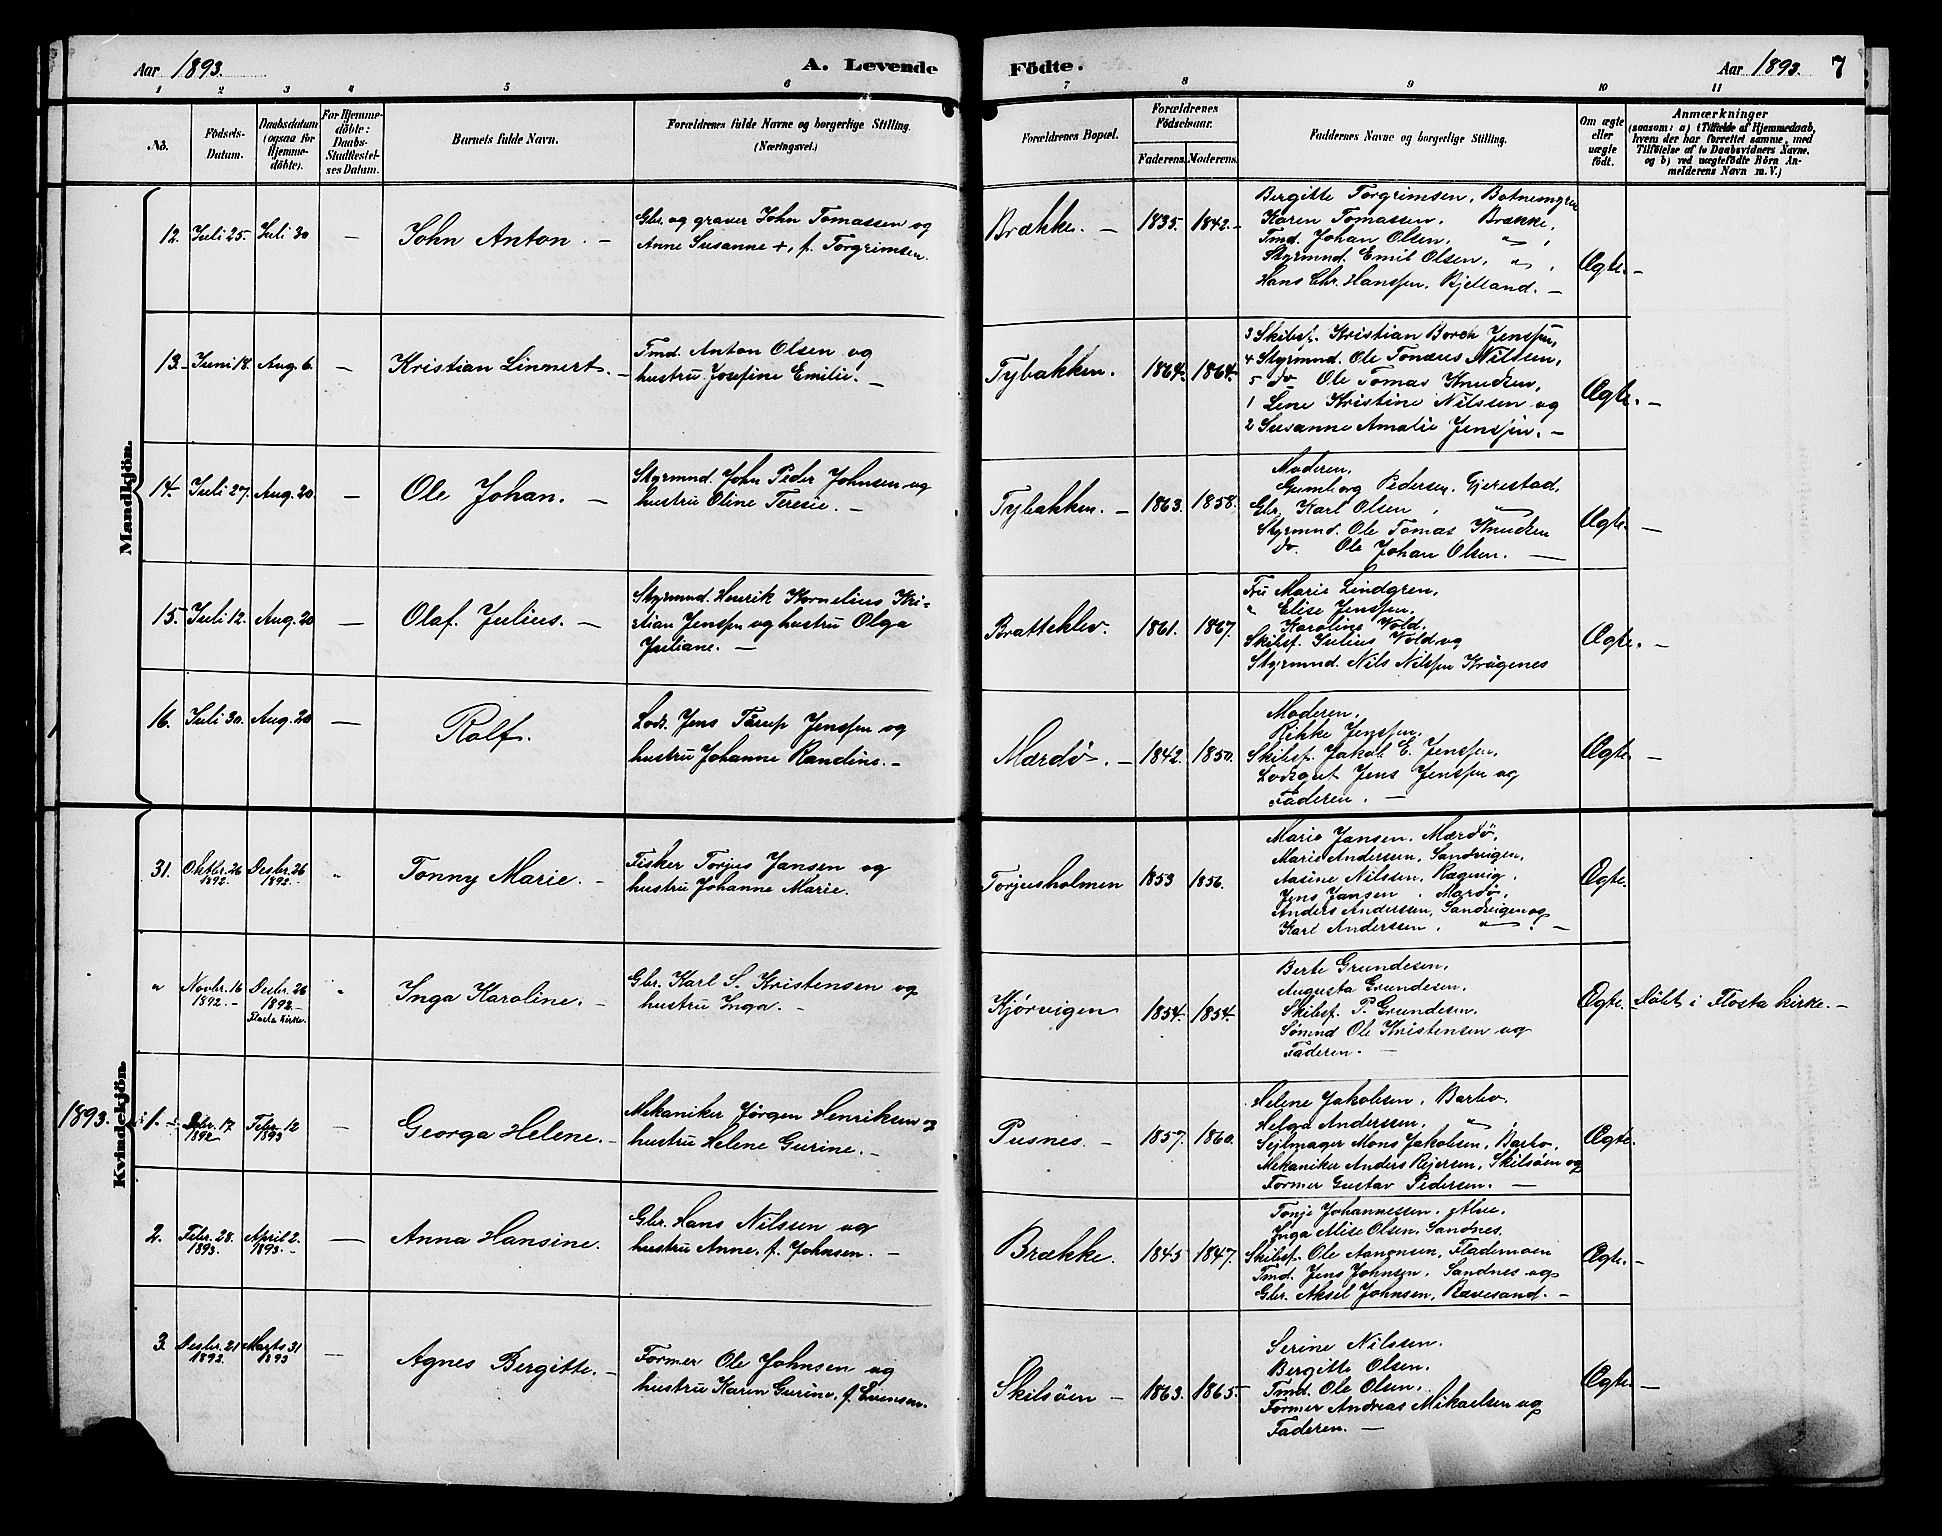 Aar 1893. A. Levende Födte. Aar 1893. 7
1 2 3 4 5 6 7 8 9 10 11
No. Födsels-Datum. Daabsdatum (ogsaa for Hjemmedöbte). For Hjemmedöbte: Daabs-Stadfæstelses Datum. Barnets fulde Navn. Forældrenes fulde Navne og borgerlige Stilling. (Næringsvei.) Forældrenes Bopæl. Forældrenes Födselsaar. Faderens. Moderens. Faddernes Navne og borgerlige Stilling. Om ægte eller uægte födt. Anmærkninger (saasom: a) i Tilfælde af Hjemmedaab, hvem der har forrettet samme, med Tilföielse af to Daabsvidners Navne, og b) ved uægtefödte Börn Anmelderens Navn m. V.)
Mandkjön.
12. Juli 25. Juli 30 — John Anton. — Gbr. og graver John Tomassen og
Anne Susanne +, f. Torgrimsen.
Brække. — 1835. 1842. —
Birgitte Torgrimsen,
Karen Tomassen, Brække,
Tmd. Johan Olsen, " ,
Styrmnd. Emil Olsen, " ,
Hans Chr. Hanssen, Bjelland. —
Ægte. —
13. Juni 18. Aug. 6. — Kristian Linnert. — Tmd. Anton Olsen og
hustru Josefine Emilie. —
Tybakken. 1864. 1864.
3 Skibsf. Kristian Borch Jenssen,
4 Styrmnd. Ole Tonæus Nilssen,
5 do Ole Tomas Knudsen,
1 Lene Kristine Nilssen og
2 Susanne Amalie Jenssen. —
Ægte. —
14. Juli 27. Aug. 20. — Ole Johan. — Styrmnd. John Peder Johnsen og
hustru Oline Teresie. —
Tybakken. — 1863. 1858.
Moderen,
Gunborg Pedersen, Gjerestad,
Gbr. Karl Olsen, "
Styrmnd. Ole Tomas Knudsen
do. Ole Johan Olsen. —
Ægte. —
15. Juli 12. Aug. 20 — Olaf Julius. — Styrmnd. Henrik Kornelius Kri-
stian Jenssen og hustru Olga
Juliane. —
Bratteklev. 1861. 1867.
Fru Marie Lindgren,
" Elise Jenssen,
" Karoline Vold,
Skibsf. Julius Vold og
Styrmnd. Nils Nilssen Krågenes
Ægte. —
16. Juli 30. Aug. 20 — Rolf. Lods. Jens Tårup Jenssen og
hustru Johanne Randine. —
Mærdø. — 1842. 1850.
Moderen,
Rikke Jenssen,
Skibsf. Jakob E. Jenssen,
Lodsgut Jens Jenssen og
Faderen. —
Ægte. —
Kvindekjön.
31. Oktbr. 26 1892. Desbr. 26 1892. " Tonny Marie. — Fisker Torjus Jansen og
hustru Johanne Marie.
Torjusholmen 1853 1856.
Marie Jansen, Mærdø,
Marie Andersen, Sandvigen,
Aasine Nilssen, Rægevig,
Jens Jansen, Mærdø,
Anders Andersen, Sandvigen og
Karl Andersen, " . —
Ægte.
" Novbr. 16 1892. — Desbr. 26 1892. — Flosta Kirke. " Inga Karoline. — Gbr. Karl S. Kristensen og
hustru Inga. —
Kjørvigen 1854. 1854.
Berte Grundesen,
Augusta Grundesen,
Skibsf. P. Grundesen,
Sømnd Ole Kristensen og
Faderen. —
Ægte. Døbt i Flosta kirke. —
1893. 1. Desbr. 17. 1892 Febr. 12 1893 — Georga Helene. — Mekaniker Jørgen Henriksen og
hustru Helene Gurine. —
Pusnes. — 1857. 1860.
Helene Jakobsen, Barbo,
Helga Anderssen, " ,
Sejlmager Mons Jakobsen, Barbo,
Mekaniker Anders Rejersen, Skilsøen og
Former Gustav Pedersen. —
Ægte.
2. Febr. 28. 1893. April 2. 1893. — Anna Hansine. Gbr. Hans Nilssen og
hustru Anne, f. Johnsen. —
Brække. 1845 1847.
Tonje Johannessen, Alve,
Inga Alise Olsen, Sandnes,
Skibsf. Ole Aanonsen, Flademoen
Tmd. Jens Johnsen, Sandnes og
Gbr. Aksel Johnsen, Rævesand. —
Ægte. —
3. Desbr. 21 1892. Marts 31 1893 — Agnes Bergitte. — Former Ole Johnsen og
hustru Karen Gurine, f. Evensen.
Skilsöen — 1863. 1865. —
Serine Nilssen.
Bergitte Olsen,
Tmd. Ole Olsen,
Former Andreas Mikaelsen og
Faderen. —
Ægte. —